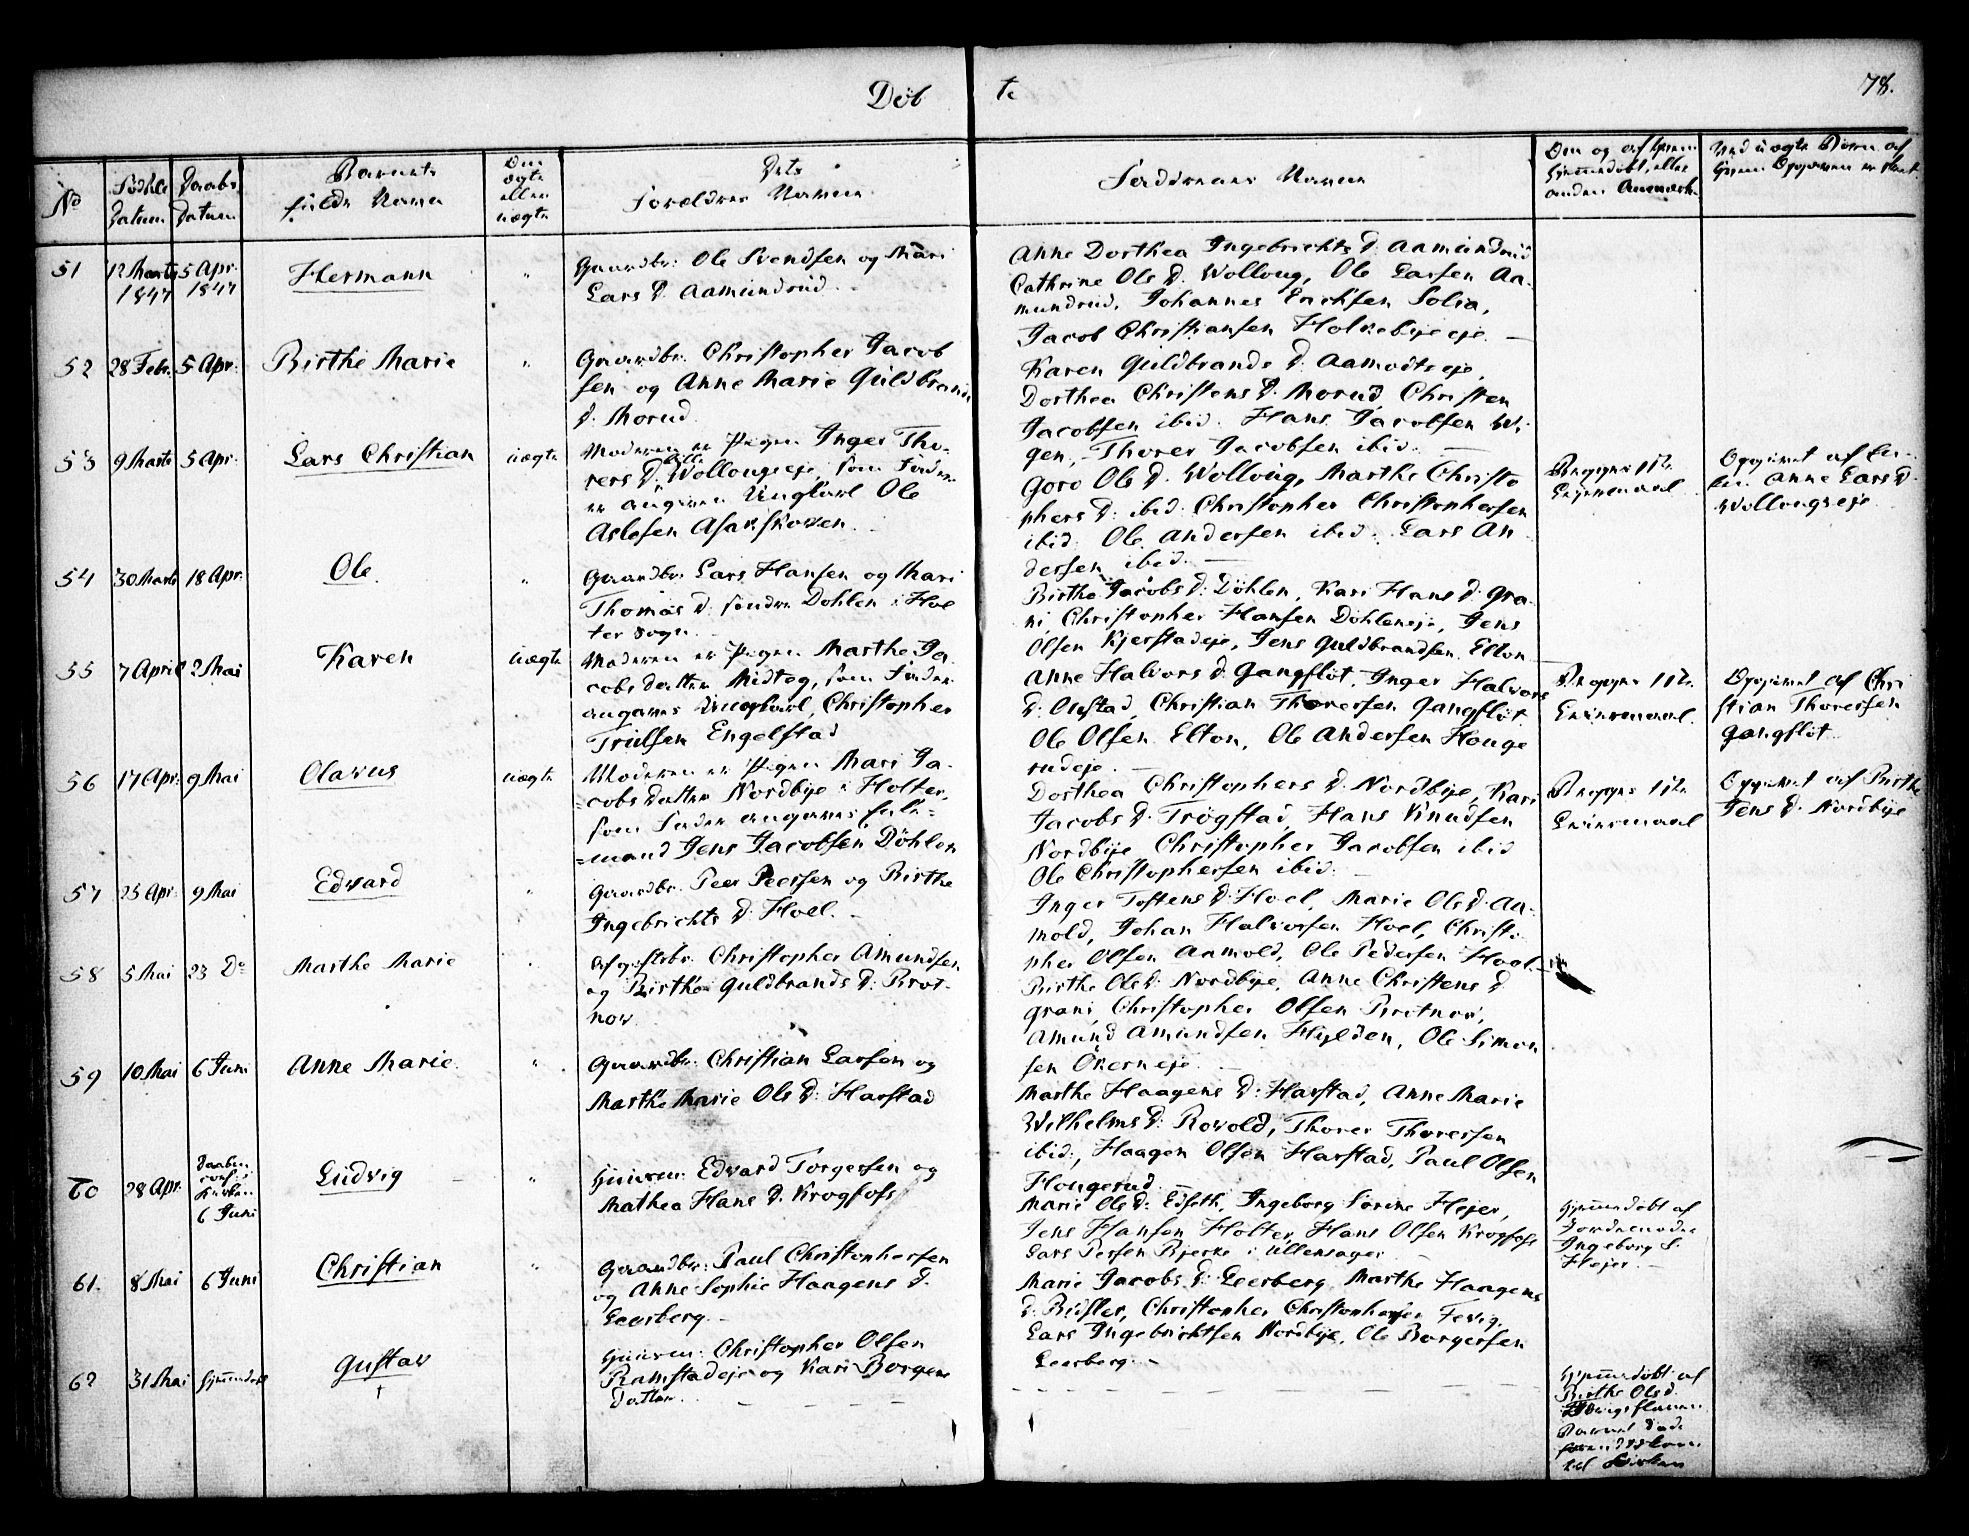 Døb te 78.
No
Fødsels Datum
Daabs Datum
Barnets fulde Navn
Om ægte eller uægte
Dets Forældres Navne
Faddernes Navne
Om og af hvem hjemmedøbt, eller anden Anmærkn.
Ved uægte Børn af hvem Opgaven er skeet
51 12 Marts 1847 5 Apr. 1847 Hermann "
Gaardbr: Ole Svendsen og Mari
Lars D. Aamundrud.
Anne Dorthea Ingebrichts D. Aamundrud
Cathrine Ols D. Wolloug, Ole Larsen Aa-
mundrud, Johannes Erichsen Solia,
Jacob Christiansen Holkebyeeje. —
52 28 Febr. 5 Apr. Birthe Marie "
Gaardbr. Christopher Jacob
sen og Anne Marie Guldbrands
D. Morud
Karen Guldbrands D. Aamodtseje,
Dorthea Christens D. Morud Christen
Jacobsen ibid. Hans Jacobsen Wi-
gen, Thorer Jacobsen ibid. —
53 9 Marts 5 Apr. Lars Christian uægte
Moderen er Pigen Inger Tho-
rers D. Wollougseje, som Fader
er angiven Ungkarl Ole
Aslesen Asakskoven.
Goro Ols D. Wolloug, Marthe Christo
phers D. ibid. Christopher Christophersen
ibid. Ole Andersen ibid. Lars An
dersen ibid. —
Begges 1ste
Leiermaal
Opgivet af
Anne Lars D.
Wollougseje
54 30 Marts 18 Apr. Ole "
Gaardbr. Lars Hansen og Mari
Thomas D. søndre Dohlen i Hol
ter Sogn.
Birthe Jacobs D. Döhlen, Kari Hans D. Gra
ni Christopher Hansen Döhleneje, Jens
Olsen Kjerstadeje, Jens Guldbrandsen Elton
55 7 April 2 Mai Karen uægte
Moderen er Pigen Marthe Ja-
cobsdatter Midtog, som Fader
angaves Ungkarl, Christopher
Trulsen Engelstad
Anne Halvors D. Gangflöt, Inger Halvors
D. Onstad, Christian Thoresen Gangflöt
Ole Olsen Elton, Ole Andersen Houge
rudeje. —
Begges 1ste
Leiermaal.
Opgivet af Chri
stian Thoresen
Gangflöt
56 17 Apr. 9 Mai Olavus uægte
Moderen er Pigen Mari Ja-
=cobsdatter Nordbye i Holter,
som Fader angaves Enke=
=mand Jens Jacobsen Döhlen
Dorthea Christophers D. Nordbye, Kari
Jacobs D. Trögstad, Hans Knudsen
Nordbye Christopher Jacobsen ibid
Ole Christophersen ibid. —
Begges 1ste
Leiermaal
Opgivet af Birthe
Jens D. Nordbye
57 25 Apr. 9 Mai Edvard "
Gaardbr. Peer Peersen og Birthe
Ingebrichts D. Hoel. -
Inger Tostens D. Hoel, Marie Ols D. Aa-
mold, Johan Halvorsen Hoel, Christo
pher Olsen Aamold, Ole Pedersen Hoel.
58 5 Mai 23 Do Marthe Marie "
Christopher Amundsen
og Birthe Guldbrands D. Brot-
nov.
Birthe Ols D. Nordbye, Anne Christens D
Grani, Christopher Olsen Brotnov,
Amund Amundsen Hylden, Ole Simon
sen Ökerneje. —
59 10 Mai 6 Juni Anne Marie "
Gaardbr. Christian Larsen og
Marthe Marie Ols D. Harstad
Marthe Haagens D. Harstad, Anne Marie
Wilhelms D. Rovold, Thorer Thoresen
ibid., Haagen Olsen Harstad, Paul Olsen
Hougerud —
60 28 Apr. Daaben i Kirken 6 Juni Ludvig "
Huusm: Edvard Torgersen og
Mathea Hans D. Krogfoss
Marie Ols D. Edseth, Ingeborg Sorine Hejer,
Jens Hansen Holter, Hans Olsen Krogfoss
Lars Persen Bjerke i Ullensager. —
Hjemmedøbt af
Jordemoder
Ingeborg S.
Hejer. —
61. 8 Mai 6 Juni Christian "
Gaardbr: Paul Christophersen
og Anne Sophie Haagens D.
Leerberg. -
Marie Jacobs D. Leerberg, Marthe Haagens
D. Bidsler, Christopher Christophersen Fevig,
Lars Ingebrichtsen Nordbye, Ole Borgersen
Leerberg. -
62 31 Mai Hjemmedøbt Gustav †
Huusm: Christopher Olsen
Ramstadeje og Kari Borgers
datter.
Hjemmedøbt af
Birthe Ols D.
Barnet døde
til Kirken